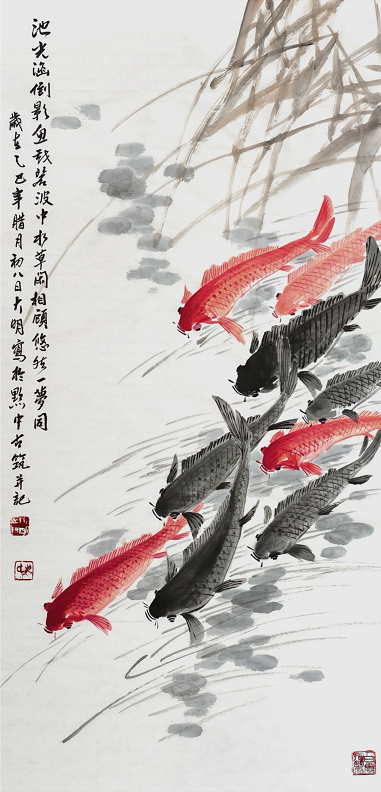 池光涵倒影鱼戏碧波中水草闲相顾悠然一梦同
歲在乙巳年腊月初八日大明寫於黔中古筑并記